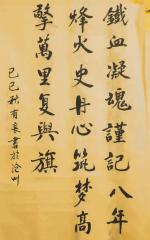 鐵血凝魂謹記八年
烽火史丹心筑梦高
擎萬里复興旗
己巳秋育泉書於滄州